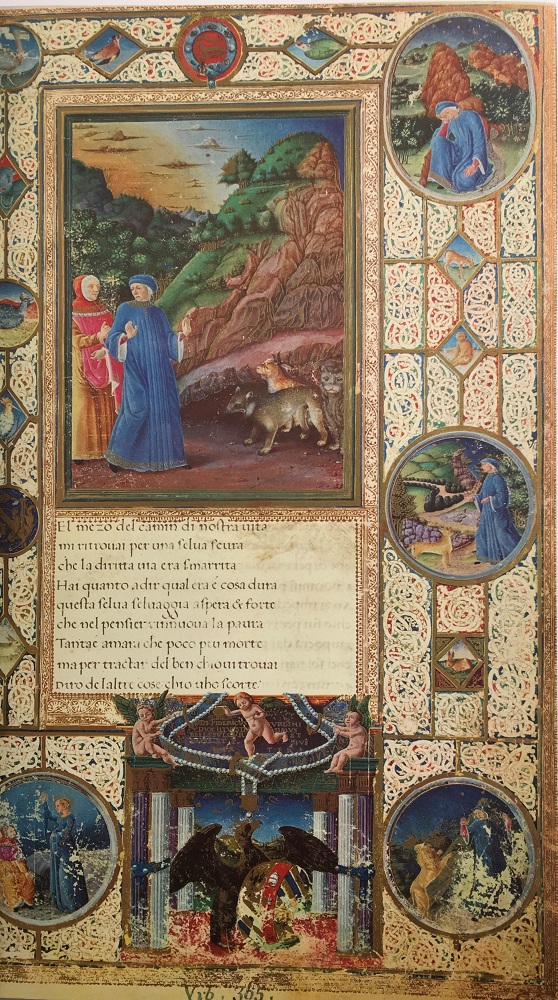 El mezo del camin di nostra uita
mi ritrouai per una selua scura
che la diritta uia era smarrita
Hai quanto adir qual era é cosa dura
questa selua seluaggia aspera & forte
che nel pensier rinnuoua la paura
Tant é amara che poco piu morte
ma per tractar del ben chioui trouai
Diro de laltre cose chio uho scorte
FEDERICO
Vrb. 365.